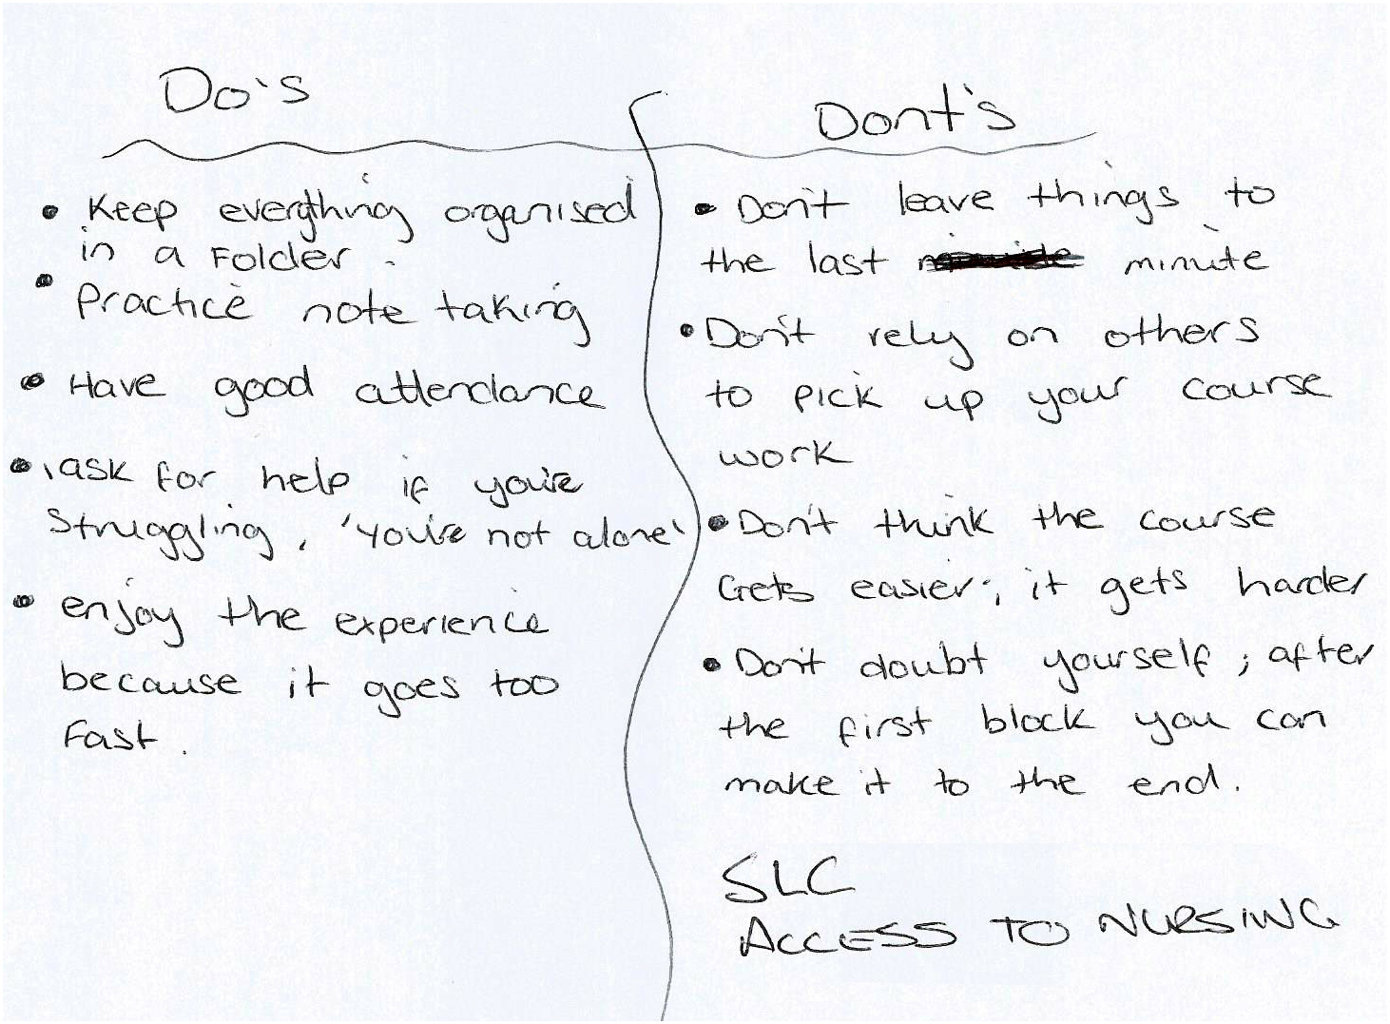 Do's
• Keep everything organised
in a Folder.
• Practice note taking
• Have good attendance
• ask for help if you're
Struggling, 'you're not alone'
• enjoy the experience
because it goes too
Fast.
Dont's
• Don't leave things to
the last minute
• Don't rely on others
to pick up your course
work
• Don't think the course
Gets easier; it gets harder
• Don't doubt yourself; after
the first block you can
make it to the end.
SLC
ACCESS TO NURSING